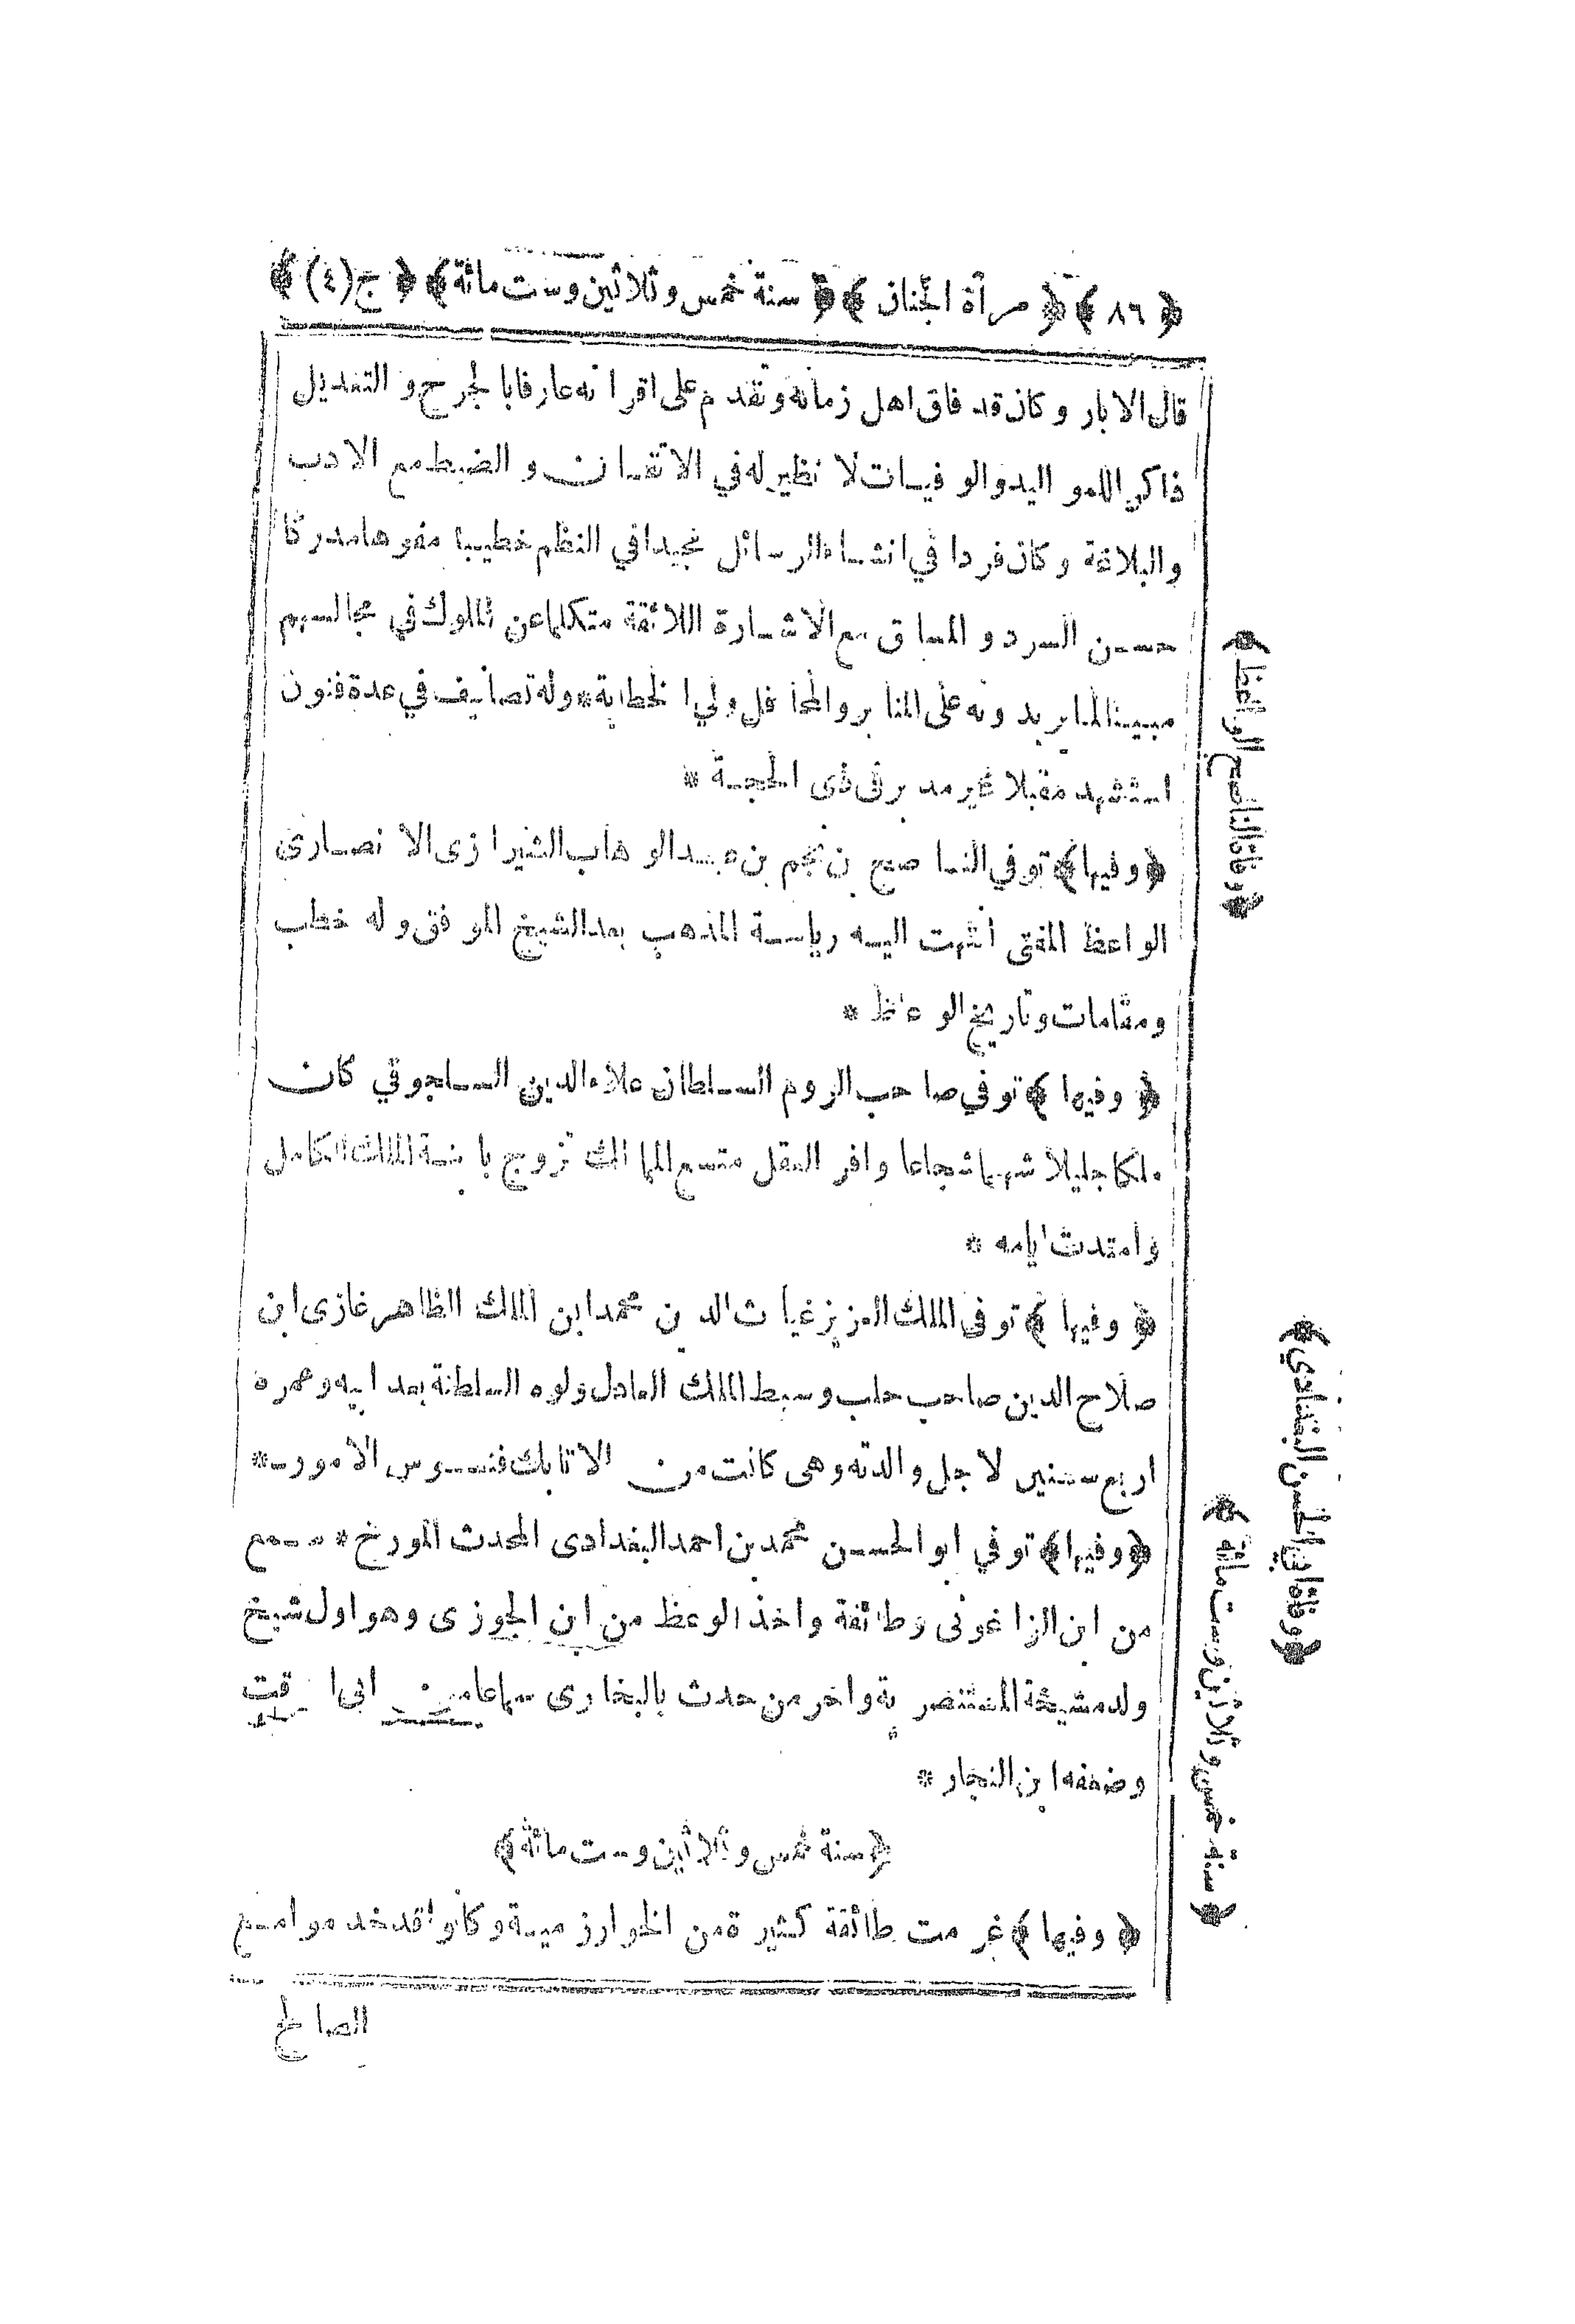 ﴿ ٨٦ ﴾ ﴿ مرأة الجنان ﴾ ﴿ سنة خمس وثلاثين وست مائة ﴾ ﴿ ج (٤) ﴾
قال الابار وكان قد فاق اهل زمانه وتقدم على اقرانه عارفا بالجرح و التعديل
ذاكر المواليد والوفيات لا نظير له في الاتقان و الضبط مع الادب
والبلاغة وكان فردا في انشاء الرسائل مجيدا في النظم خطيبا مفوها مدركا
حسن السرد و المساق مع الاشارة اللائقة متكلما عن الملوك في مجالسهم
مبينا لما يريدونه على المنابر والمحافل ولي الخطابة * وله تصانيف في عدة فنون
استشهد مقبلا غير مدبر في ذى الحجة *
﴿ وفيها ﴾ توفي الناصح بن نجم بن عبد الوهاب الشيرازى الانصارى
الواعظ المفتى انتهت اليه رياسة المذهب بعد الشيخ الموفق وله خطب
ومقامات وتاريخ الوعاظ *
﴿ وفيها ﴾ توفي صاحب الروم السلطان علاء الدين السلجوقي كان
ملكا جليلا شهما شجاعا وافر العقل متسع الممالك تزوج بابنة الملك الكامل
وامتدت ايامه *
﴿ وفيها ﴾ توفى الملك العزيز غياث الدين محمد ابن الملك الظاهر غازى ابن
صلاح الدين صاحب حلب وسبط الملك العادل ولوه السلطنة بعد ابيه وعمره
اربع سنين لاجل والدته وهى كانت من الاتابك فتسوس الامور *
﴿ وفيها ﴾ توفي ابو الحسن محمد بن احمد البغدادى المحدث المورخ * سمع
من ابن الزاغونى وطائفة واخذ الوعظ من ابن الجوزى وهو اول شيخ
ولد مشيخة المستنصرية واخر من حدث بالبخارى سماعا من ابى الوقت
وضعفه ابن النجار *
﴿ سنة خمس وثلاثين وست مائة ﴾
﴿ وفيها ﴾ غرمت طائفة كثيرة من الخوارزمية وكانوا قد خدموا مع
الصالح
﴿ وفاة الناصح الواعظ ﴾
﴿ وفاة ابي الحسن البغدادي ﴾
﴿ سنة خمس وثلاثين وست مائة ﴾